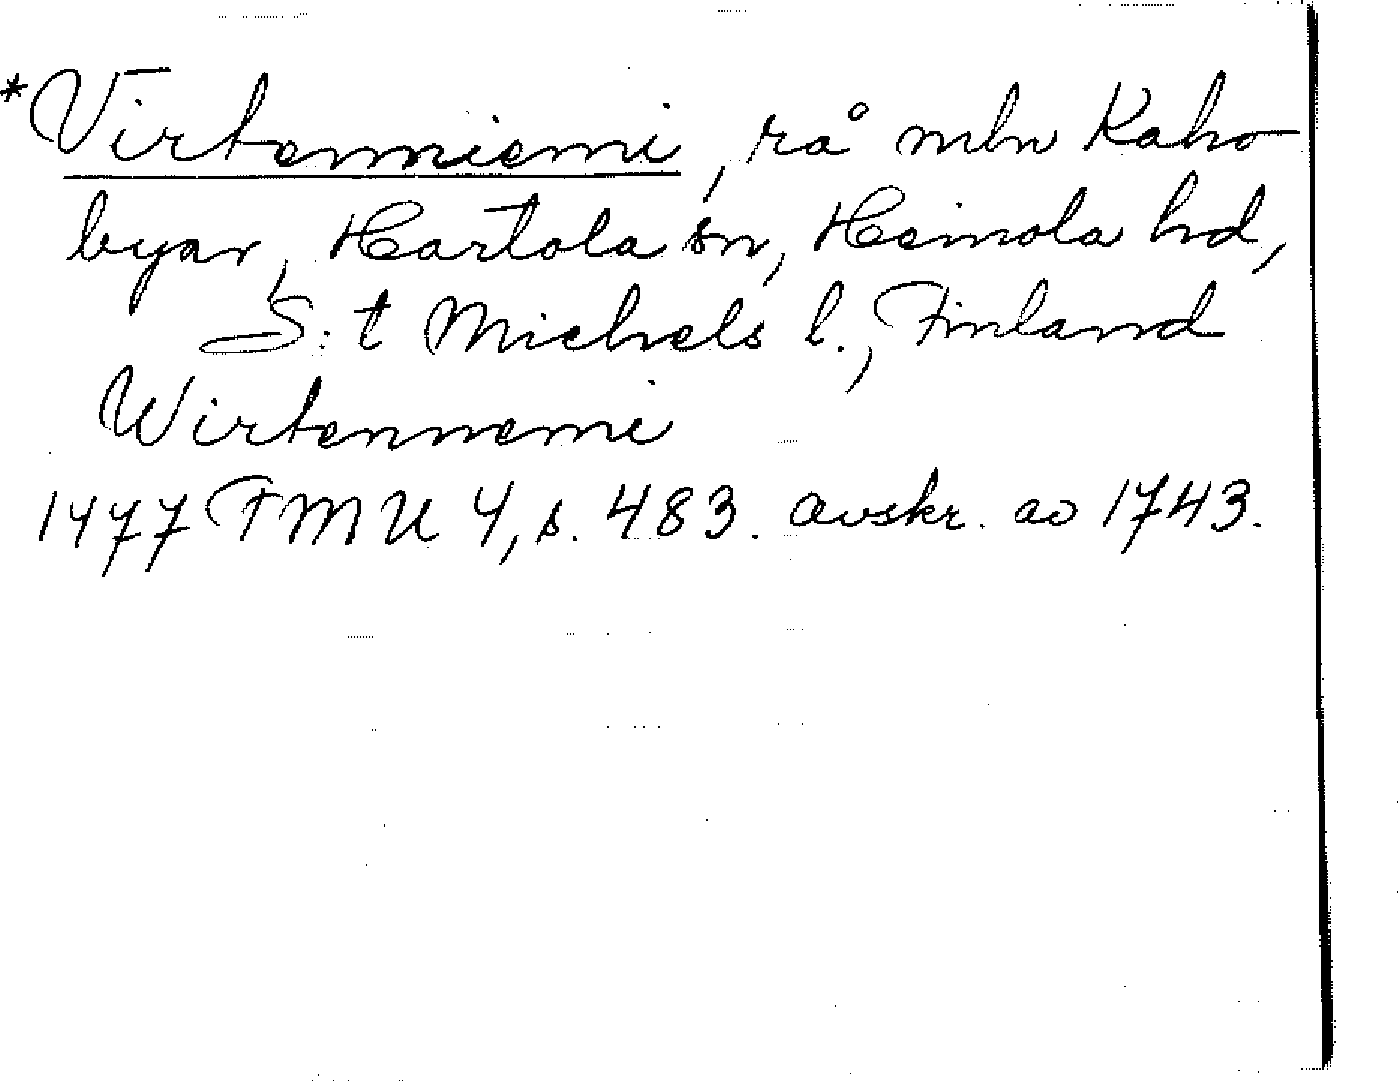 *Virtenniemi, rå mln Kaho
byar, Hartola sn, Heinola hd,
S:t Michels l., Finland
Wirtennemi
1477 FMU 4, s. 483. avskr. av 1743.